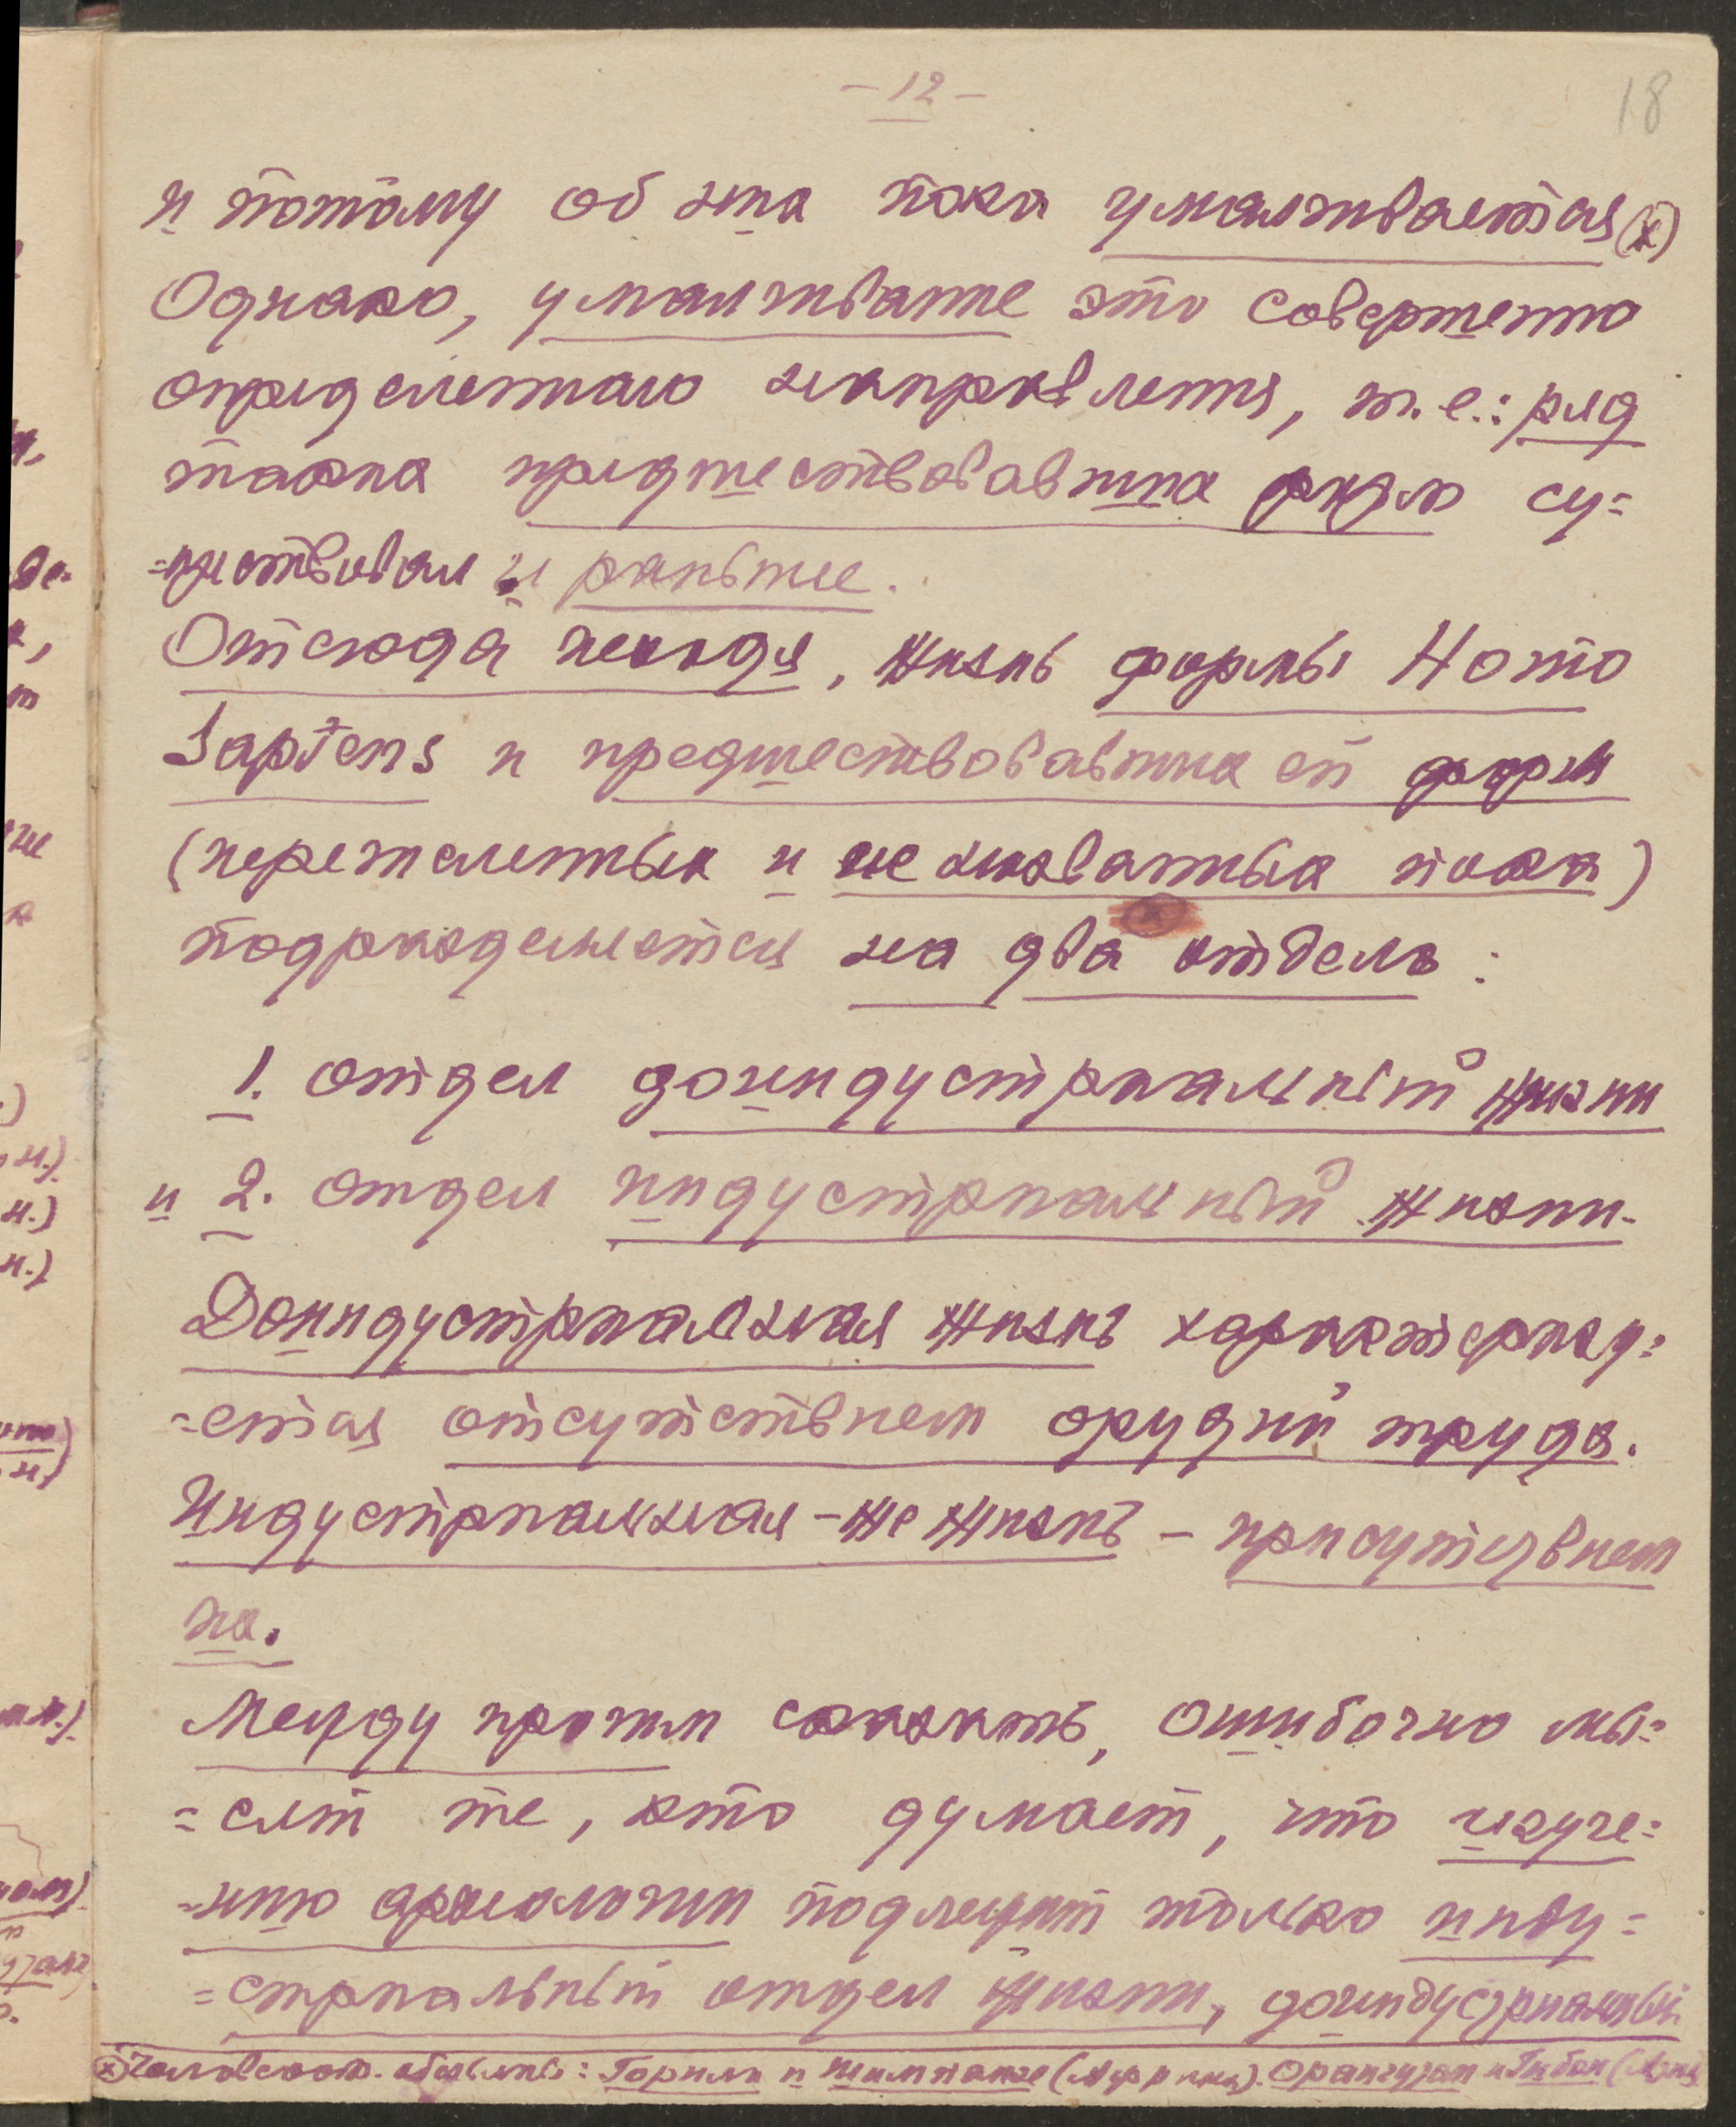 - 12 -
18
и потому об них пока умалчивается (х)
Однако, умалчивание это совершенно
определенного направления, т.е.: ряд
таких предшествовавших рядов су=
=ществовал и раньше.
Отсюда исходя, жизнь формы Homo
Sapiens и предшествовавших ей форм
(перечисленных и не названных пока)
подразделяется на два отдела:
1. отдел доиндустриальной жизни
и 2. отдел индустриальной жизни.
Доиндустриальная жизнь характеризу=
=ется отсутствием орудий труда.
Индустриальная-же жизнь – присутствием
их.
Между прочим сказать, ошибочно мы=
=слят те, кто думает, что изуче=
=нию археологии подлежит только инду=
=стриальный отдел жизни, доиндустриальный
(х) Человекооб. обезьяны: Горилла и шимпанзе (Африка). Орангутан и Гибон (Азия)